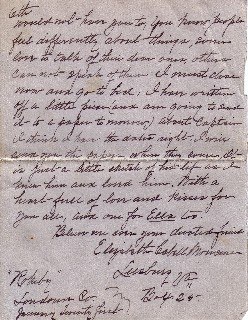 would not have you to, you know, people
feel differently about things, some
love to talk of their dear ones, others
can not speak of them. I must close
now and go to bed. I have written
off a little piece and am going to send
it to a paper to-morrow, about Captain
I think I have the dates right. I will
send you the paper when they come. It
is just a little sketch of his life as I
knew him and loved him. With a
heart full of love and kisses for
you all, and one for
Believe me ever your devoted friend
Elizabeth
Leesburg
"Rokeby" Va.
Loudoun Co. Box 25
January Twenty first